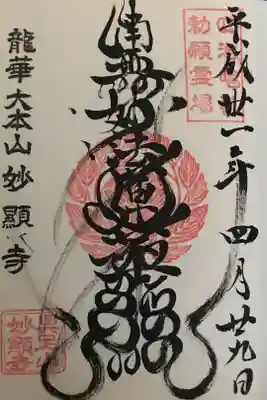 平成卅一年四月廿九日
勅願霊場
南無妙法蓮華経
龍華大本山妙顕寺
妙顕寺